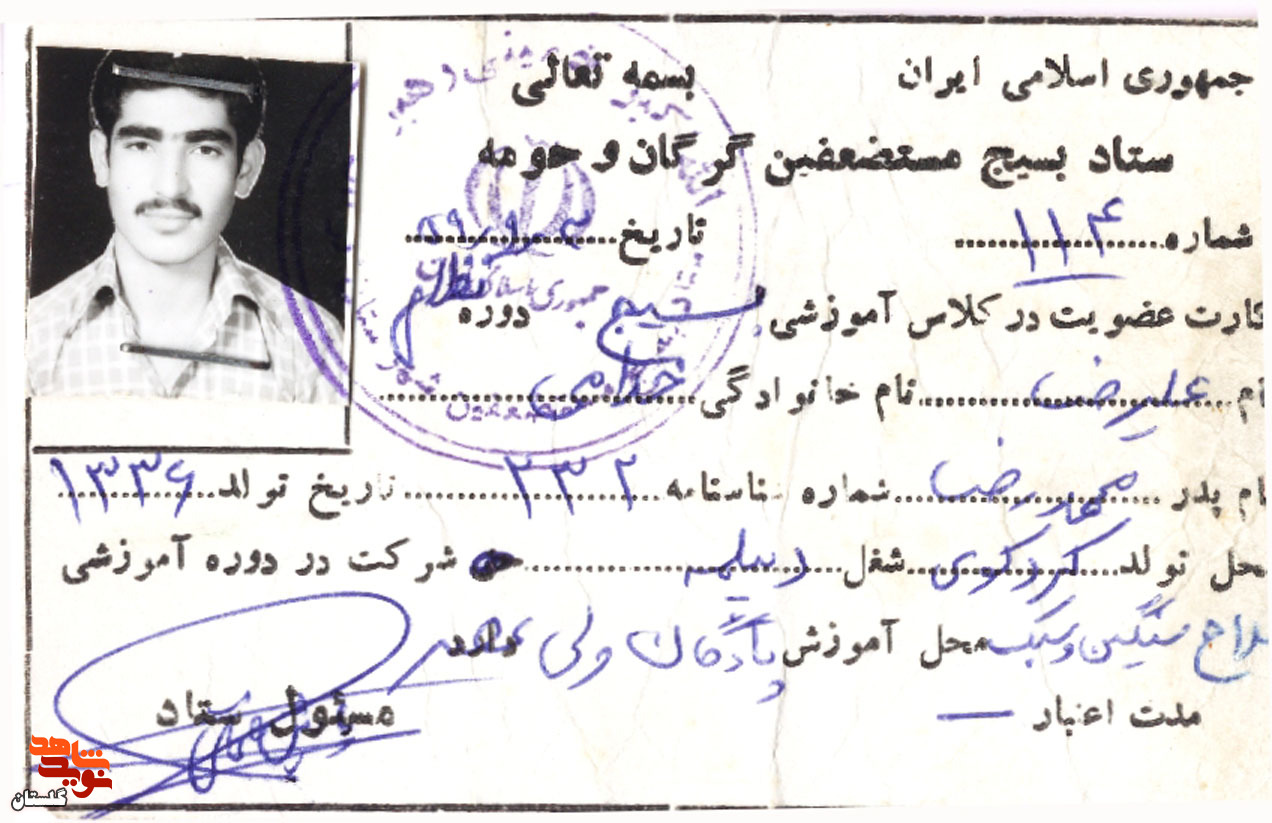 جمهوری اسلامی ایران
بسمه تعالی
ستاد بسیج مستضعفین گرگان و حومه
شماره ۱۱۴ تاریخ
کارت عضویت در کلاس آموزشی بسیج دوره
نام علیرضا نام خانوادگی
نام پدر محمدرضا شماره شناسنامه ۲۳۲ تاریخ تولد ۱۳۳۶
محل تولد کردکوی شغل دیپلمه شرکت در دوره آموزشی
سلاح سنگین و سبک محل آموزش پادگان ولی عصر دارد
مدت اعتبار —
مسئول ستاد
نوید شاهد
گلستان